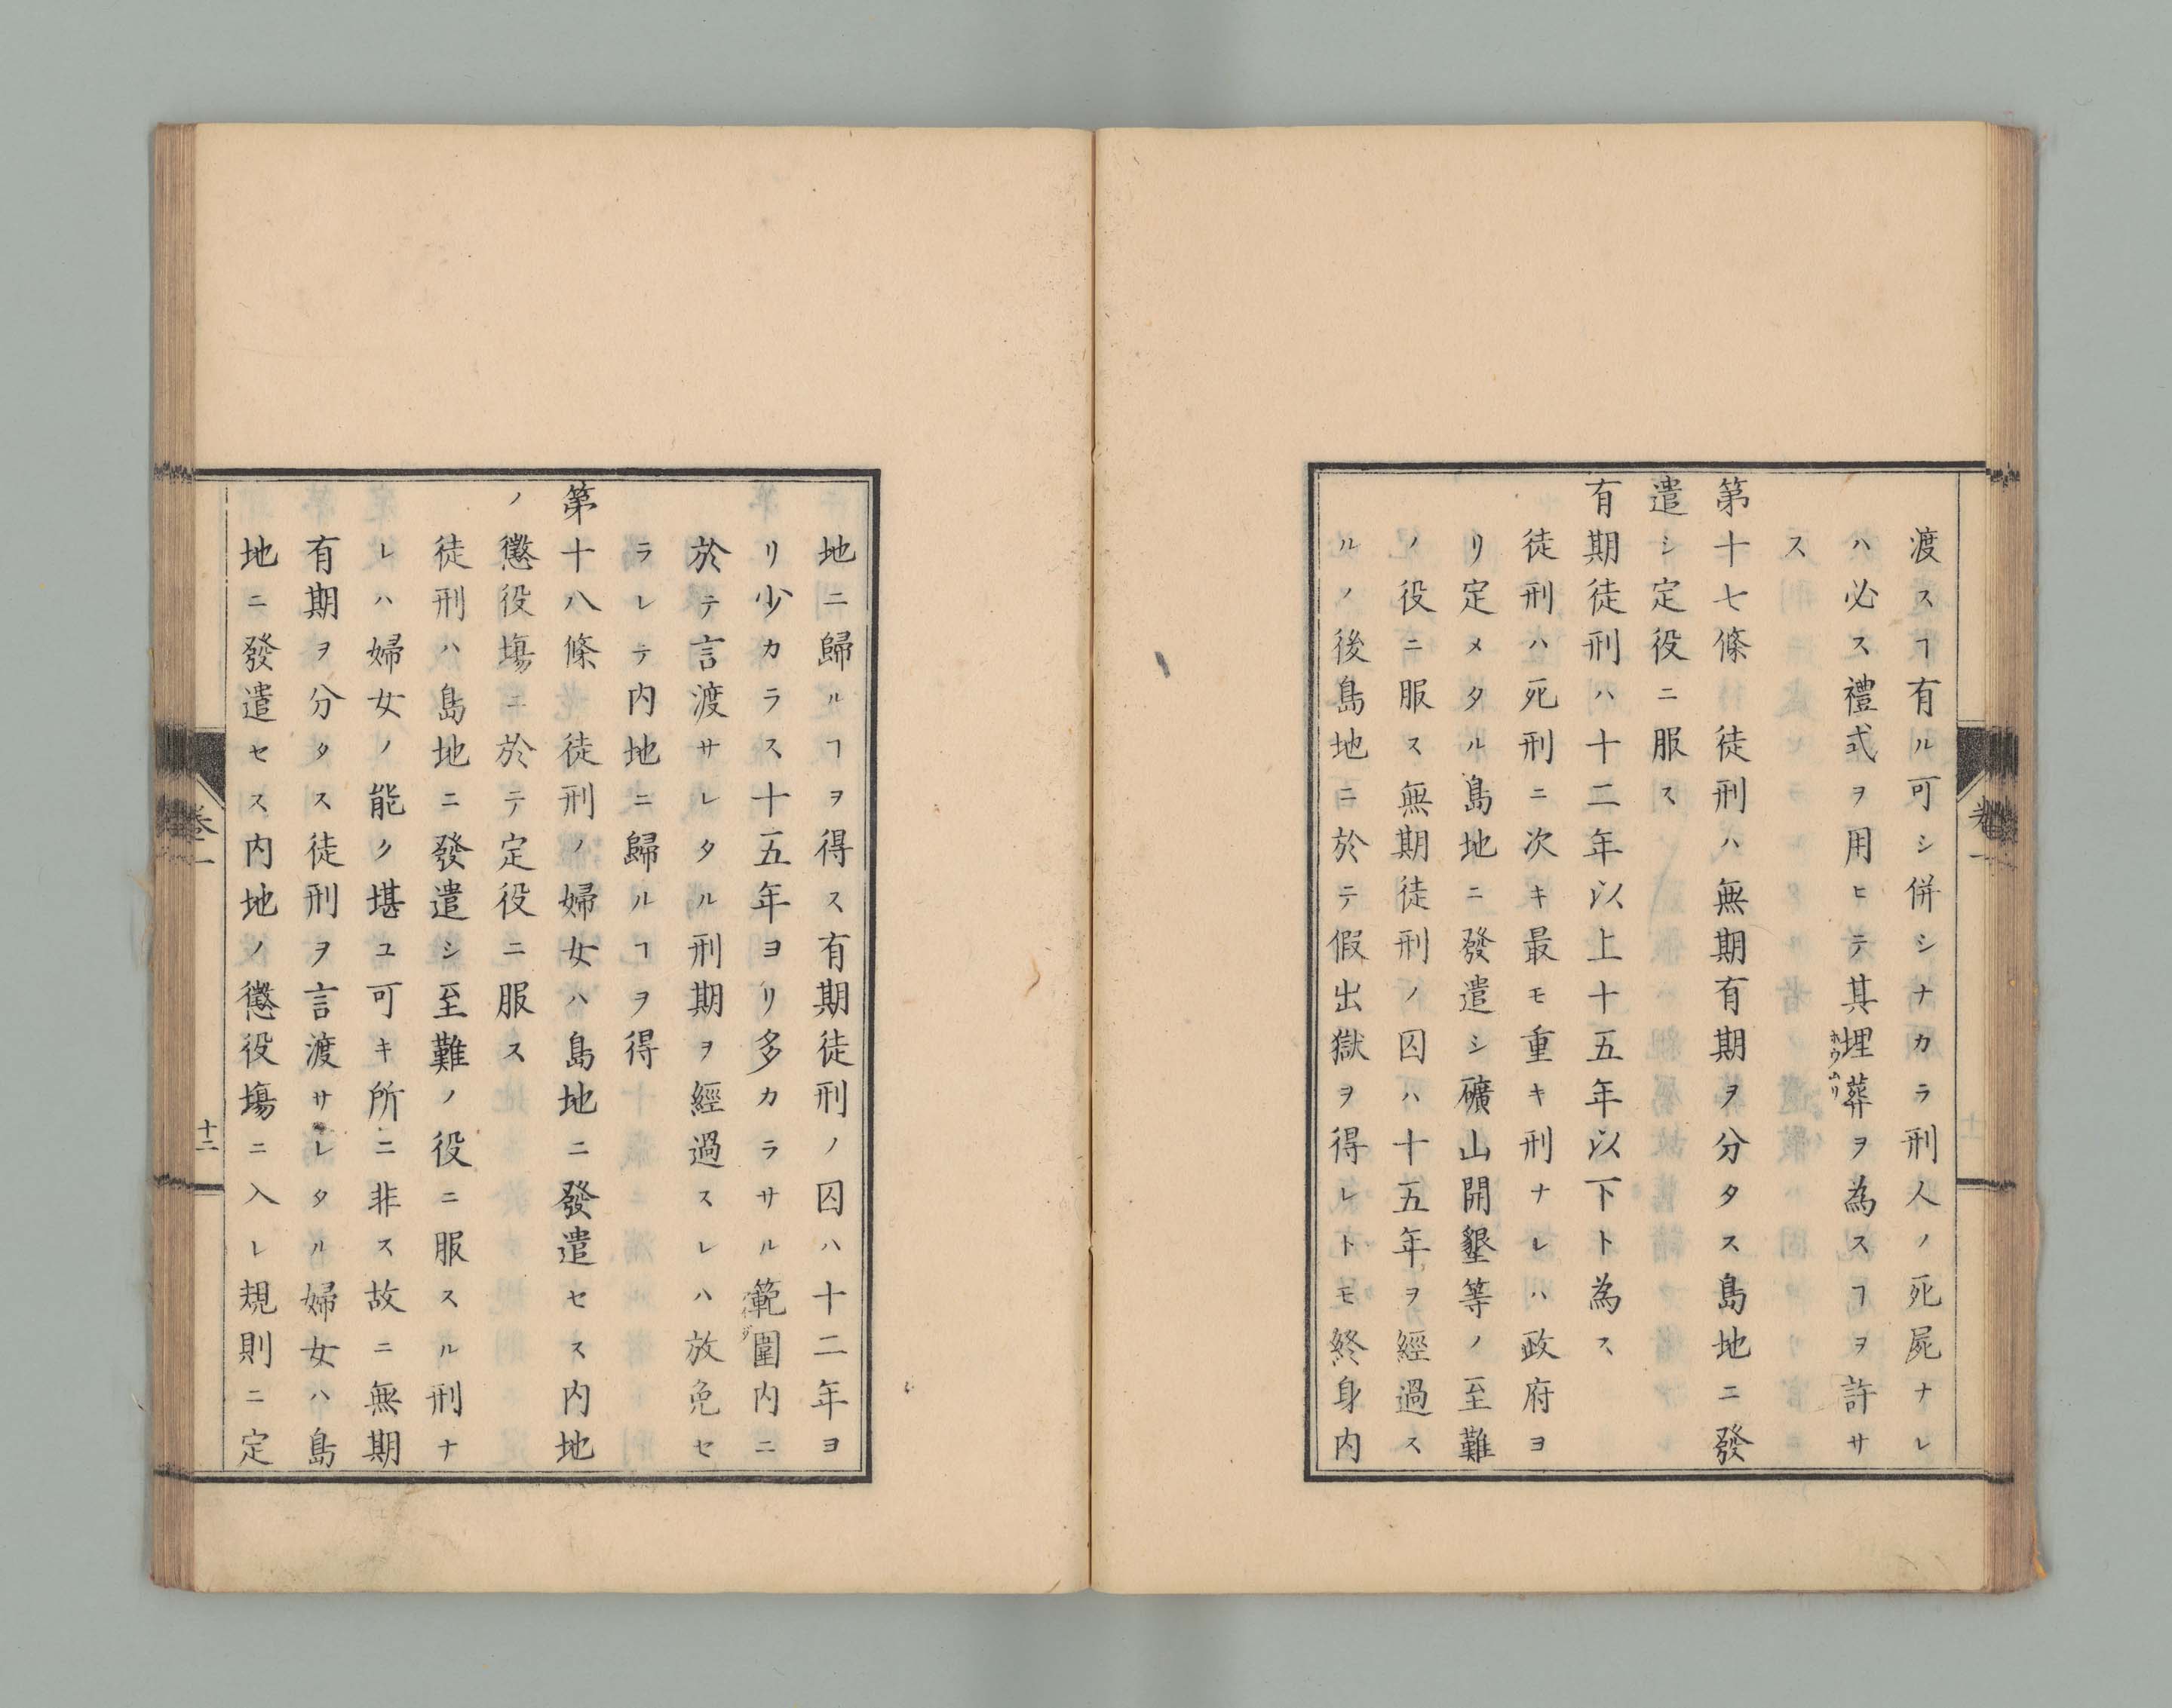 渡スヿ有ル可シ併シナカラ刑人ノ死屍ナレ
ハ必ス禮式ヲ用ヒテ其埋葬ヲ為スヿヲ許サ
ス
第十七條　徒刑ハ無期有期ヲ分タス島地ニ發
遣シ定役ニ服ス
有期徒刑ハ十二年以上十五年以下ト為ス
徒刑ハ死刑ニ次キ最モ重キ刑ナレハ政府ヨ
リ定メタル島地ニ發遣シ礦山開墾等ノ至難
ノ役ニ服ス無期徒刑ノ囚ハ十五年ヲ經過ス
ルノ後島地ニ於テ假出獄ヲ得レトモ終身内
地ニ歸ルヿヲ得ス有期徒刑ノ囚ハ十二年ヨ
リ少カラス十五年ヨリ多カラサル範圍内ニ
於テ言渡サレタル刑期ヲ經過スレハ放免セ
ラレテ内地ニ歸ルヿヲ得
第十八條　徒刑ノ婦女ハ島地ニ發遣セス内地
ノ懲役塲ニ於テ定役ニ服ス
徒刑ハ島地ニ發遣シ至難ノ役ニ服スル刑ナ
レハ婦女ノ能ク堪ユ可キ所ニ非ス故ニ無期
有期ヲ分タス徒刑ヲ言渡サレタル婦女ハ島
地ニ發遣セス内地ノ懲役塲ニ入レ規則ニ定
卷一
十二